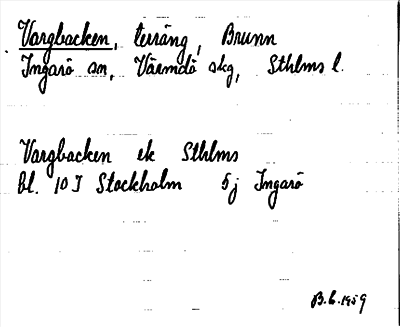 Vargbacken, terräng, Brunn
Ingarö sn, Värmdö skg, Sthlms l.
Vargbacken ek Sthlms
Bl. 10 I Stockholm 5j Ingarö
B.L. 1959